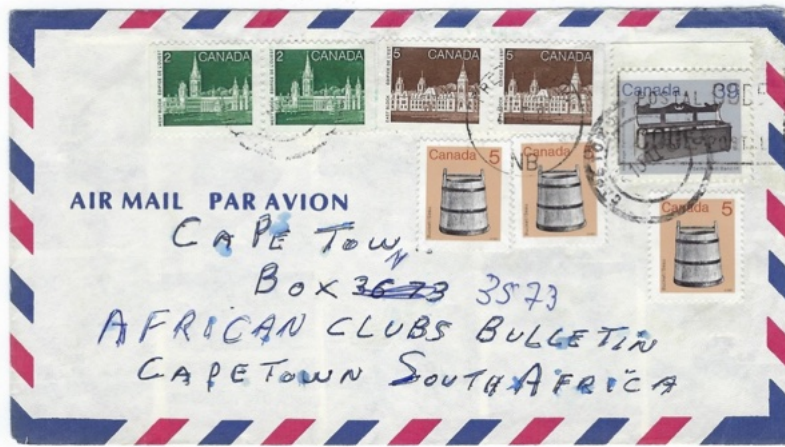 2 CANADA 2 CANADA 5 CANADA 5 CANADA
Canada 39
POSTAL CODE
CODE POSTAL
NB
Canada 5 Canada 5
Canada 5
AIR MAIL PAR AVION
CAPE TOWN
BOX 3673 3573
AFRICAN CLUBS BULLETIN
CAPETOWN SOUTH AFRICA